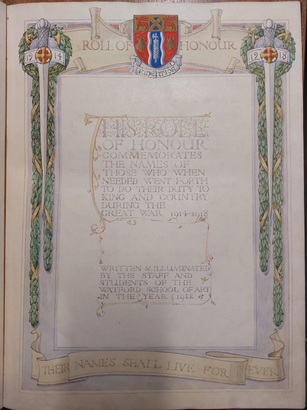 ROLL OF HONOUR
1914 1918
THIS ROLL
OF HONOUR
COMMEMORATES
THE NAMES OF
THOSE WHO WHEN
NEEDED WENT FORTH
TO DO THEIR DUTY TO
KING AND COUNTRY
DURING THE
GREAT WAR 1914-1918
WRITTEN & ILLUMINATED
BY THE STAFF AND
STUDENTS OF THE
WATFORD SCHOOL OF ART
IN THE YEAR 1922
THEIR NAMES SHALL LIVE FOR EVER